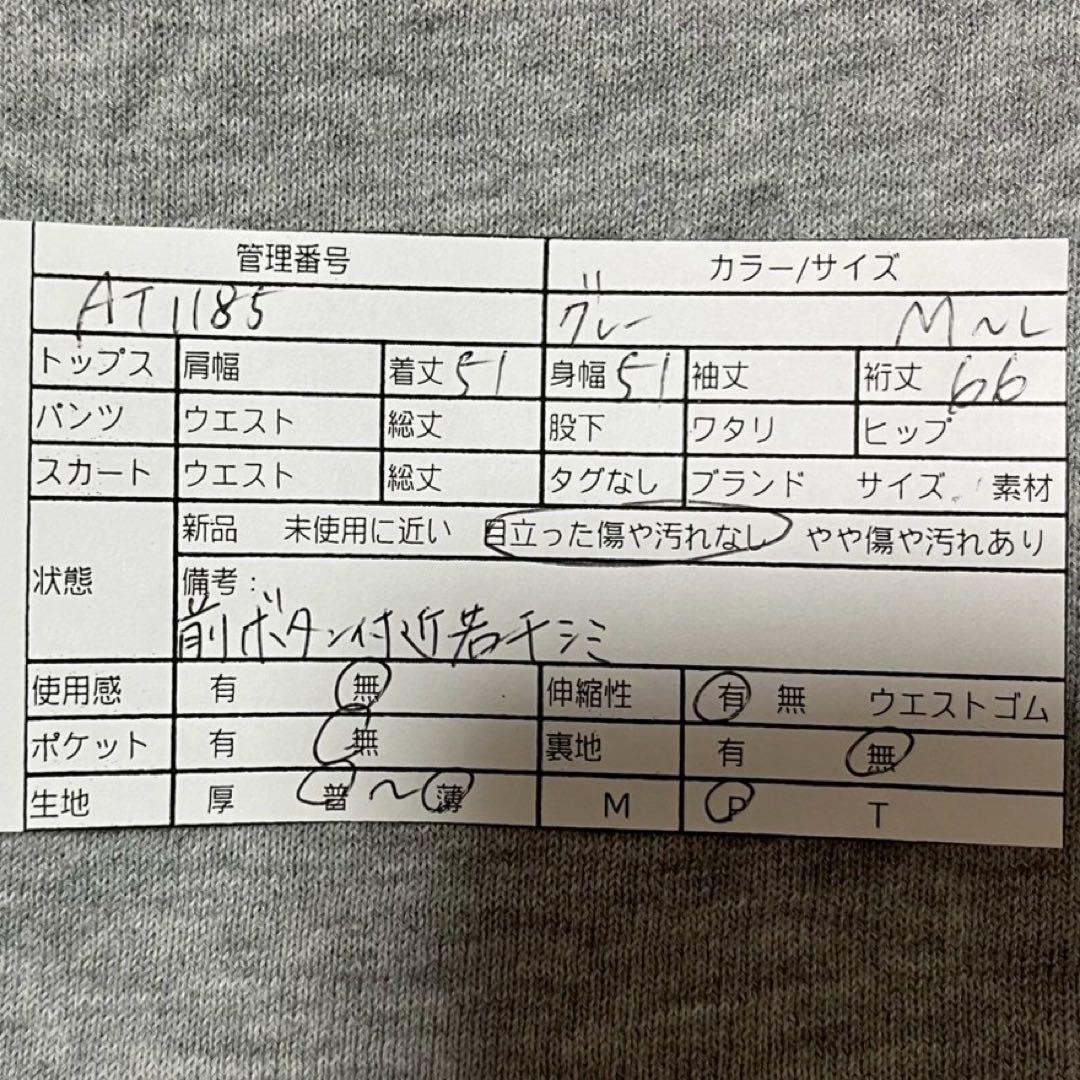 管理番号 カラー/サイズ
AT1185 グレー M～L
トップス 肩幅 着丈 51 身幅 51 袖丈 裄丈 66
パンツ ウエスト 総丈 股下 ワタリ ヒップ
スカート ウエスト 総丈 タグなし ブランド サイズ 素材
新品 未使用に近い 目立った傷や汚れなし やや傷や汚れあり
状態 備考:
前ボタン付近若干シミ
使用感 有 無 伸縮性 有 無 ウエストゴム
ポケット 有 無 裏地 有 無
生地 厚 普～薄 M P T